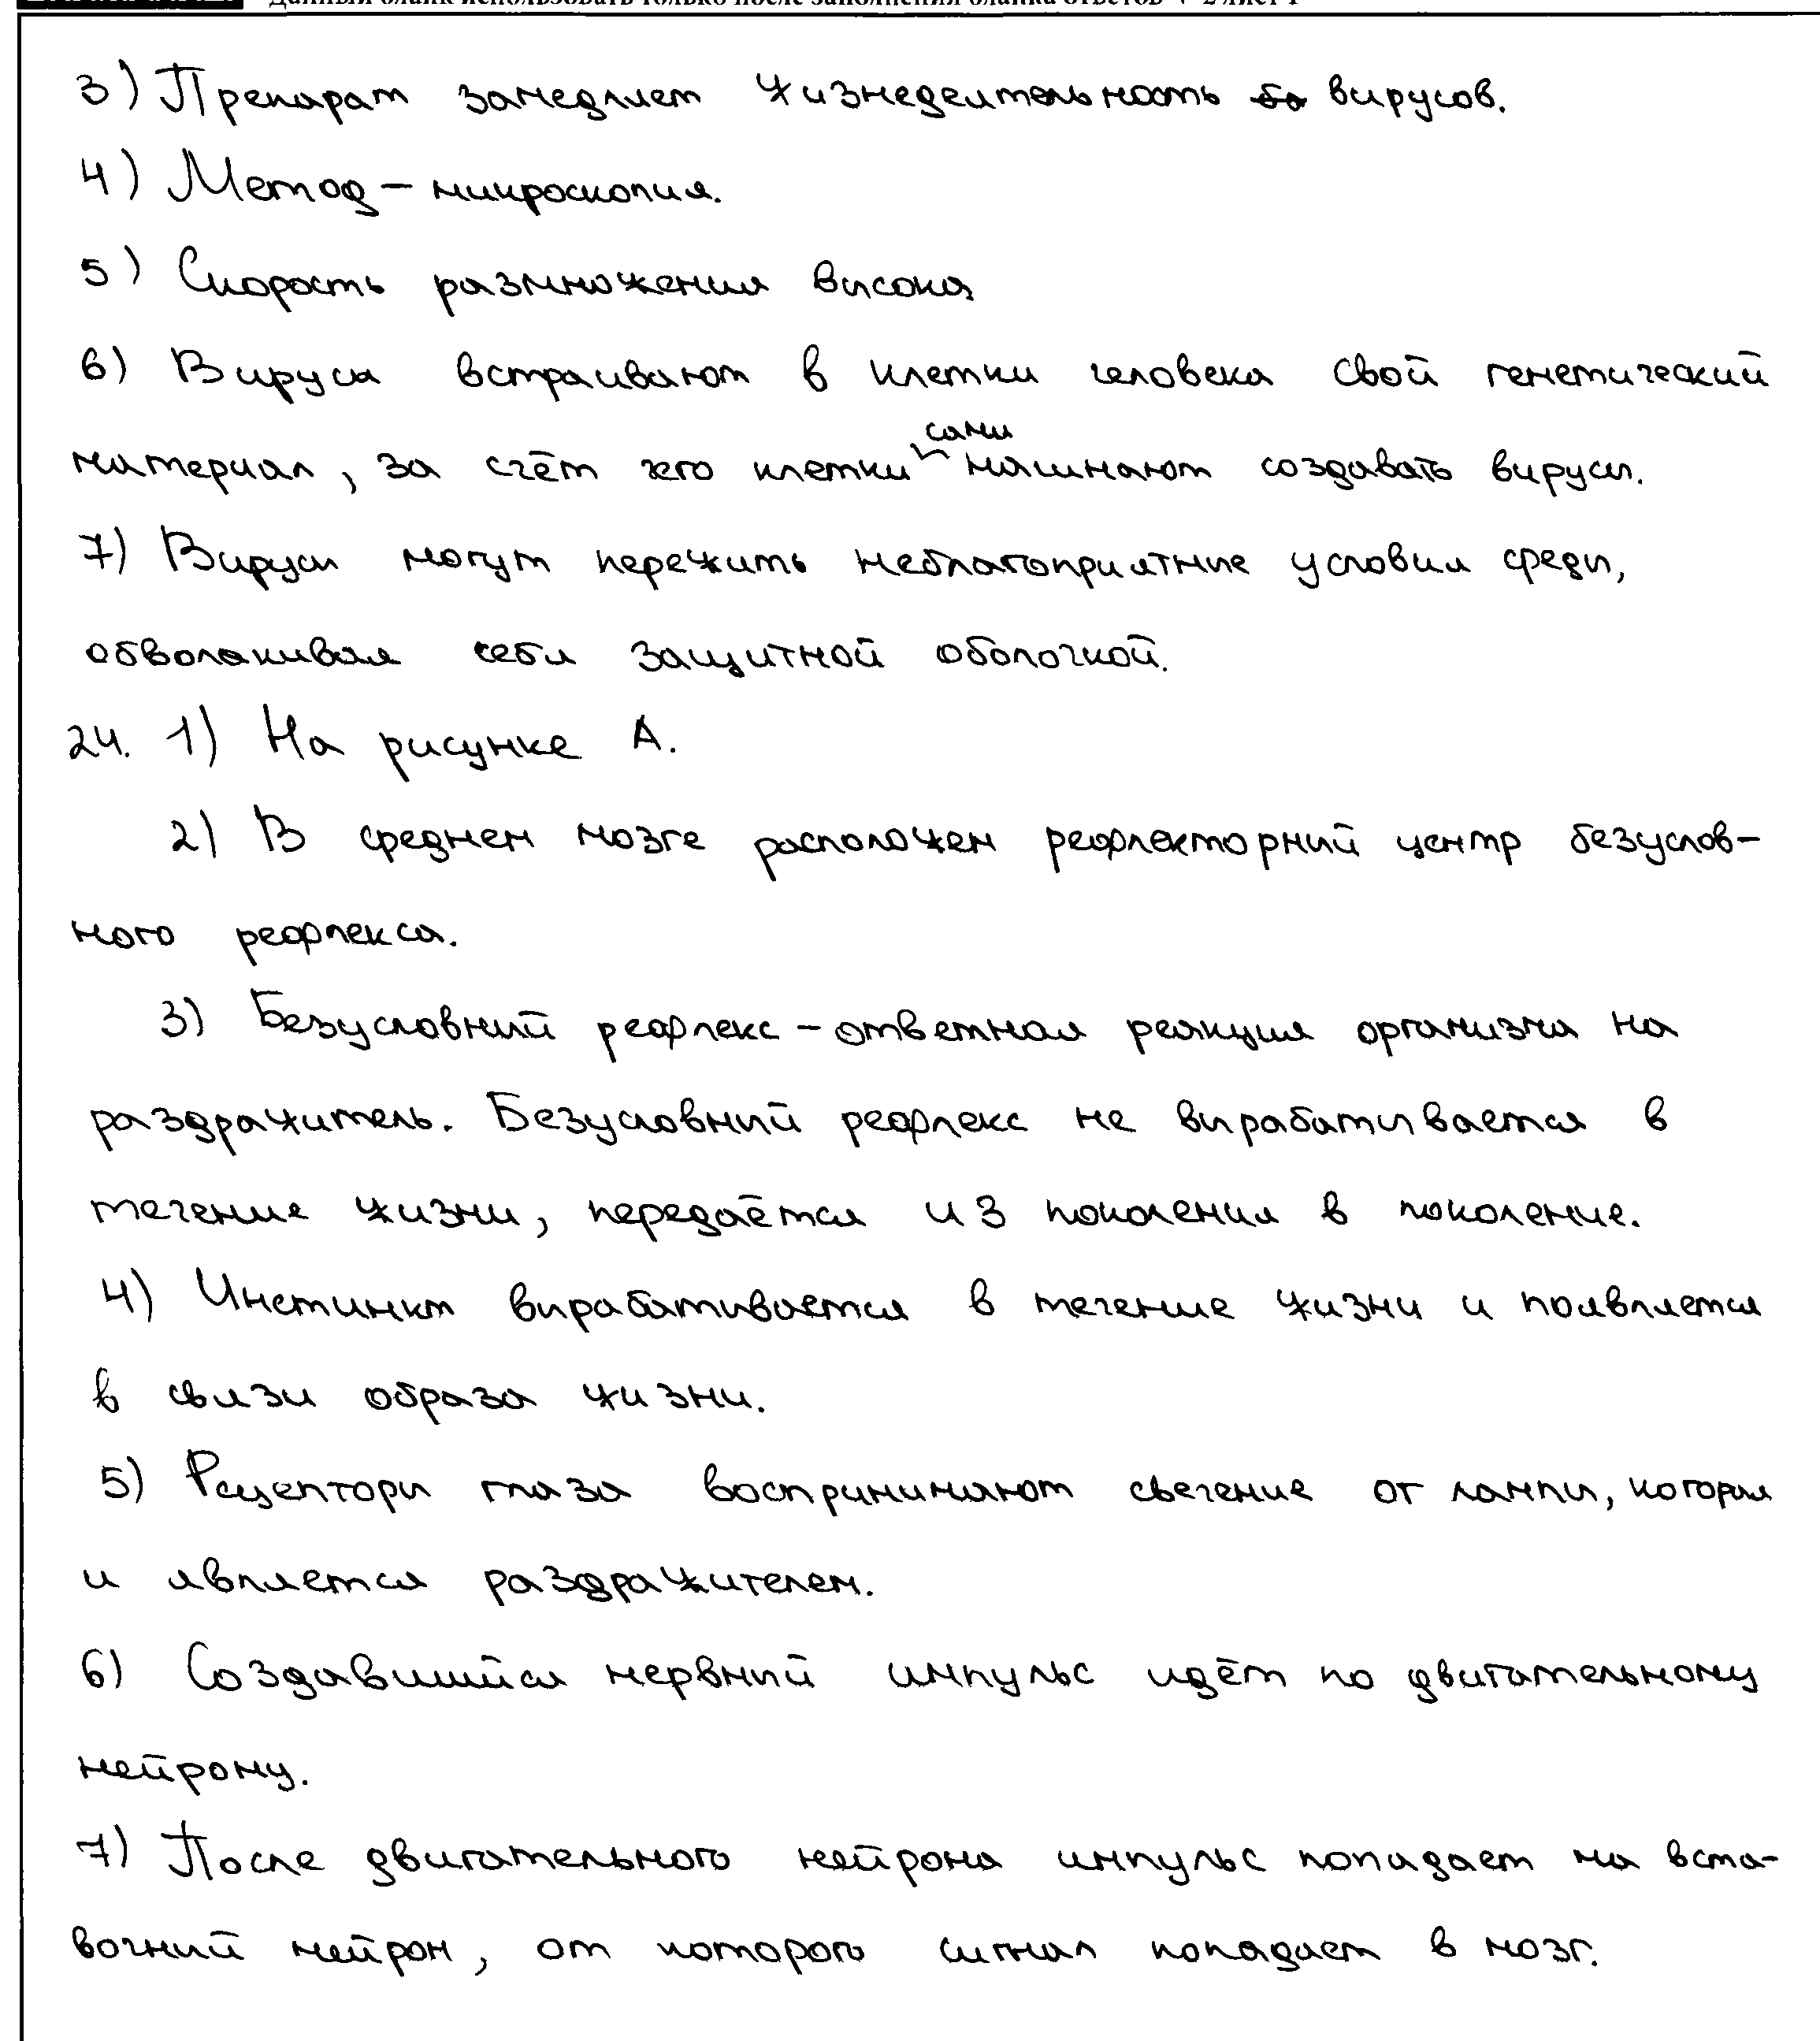 Данный бланк использовать только после заполнения бланка ответов № 2 лист 1
3) Препарат замедляет жизнедеятельность вирусов.
4) Метод – микроскопия.
5) Скорость размножения высока
6) Вирусы встраивают в клетки человека свой генетический
материал, за счёт чего клетки сами начинают создавать вирусы.
7) Вирусы могут пережить неблагоприятные условия среды,
обволакивая себя защитной оболочкой.
24. 1) На рисунке А.
2) В среднем мозге расположен рефлекторный центр безуслов-
ного рефлекса.
3) Безусловный рефлекс – ответная реакция организма на
раздражитель. Безусловный рефлекс не вырабатывается в
течение жизни, передаётся из поколения в поколение.
4) Инстинкт вырабатывается в течение жизни и появляется
в связи образа жизни.
5) Рецепторы глаза воспринимают свечение от лампы, которая
и является раздражителем.
6) Создавшийся нервный импульс идёт по двигательному
нейрону.
7) После двигательного нейрона импульс попадает на вста-
вочный нейрон, от которого сигнал попадает в мозг.